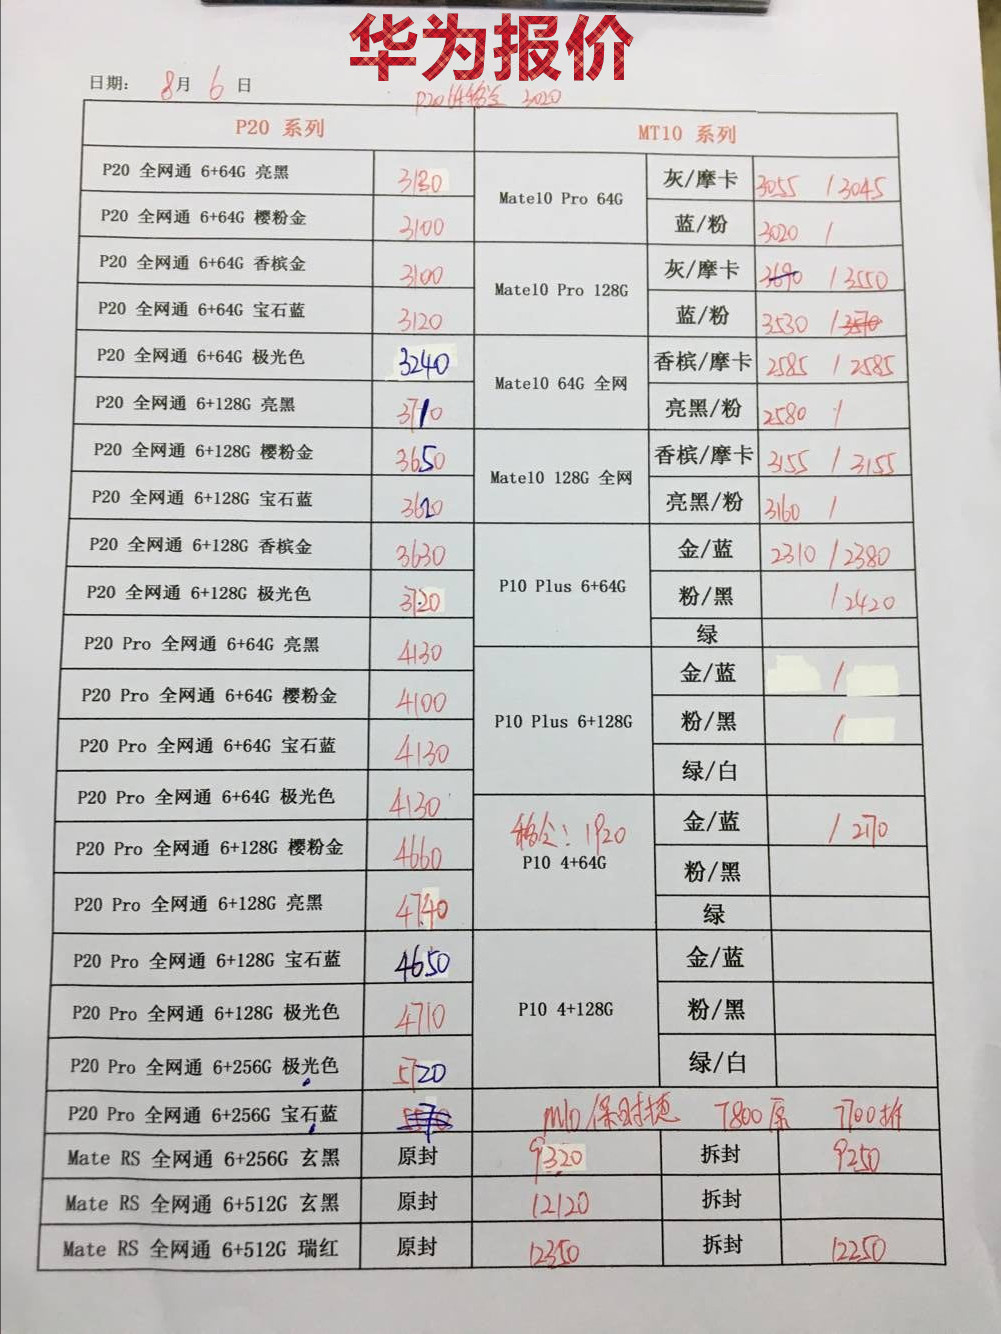 华为报价
日期： 8月 6 日
P20 3020
P20 系列 MT10 系列
P20 全网通 6+64G 亮黑 3130
Mate10 Pro 64G 灰/摩卡 3055 / 3045
P20 全网通 6+64G 樱粉金 3100
蓝/粉 3020 /
P20 全网通 6+64G 香槟金 3100
Mate10 Pro 128G 灰/摩卡 3690 / 3550
P20 全网通 6+64G 宝石蓝 3120
蓝/粉 3530 / 3570
P20 全网通 6+64G 极光色 3240
Mate10 64G 全网 香槟/摩卡 2585 / 2585
P20 全网通 6+128G 亮黑 3710
亮黑/粉 2580 /
P20 全网通 6+128G 樱粉金 3650
Mate10 128G 全网 香槟/摩卡 3155 / 3155
P20 全网通 6+128G 宝石蓝 3620
亮黑/粉 3160 /
P20 全网通 6+128G 香槟金 3630
P10 Plus 6+64G 金/蓝 2310 / 2380
P20 全网通 6+128G 极光色 3720
粉/黑 / 2420
绿
P20 Pro 全网通 6+64G 亮黑 4130
P10 Plus 6+128G 金/蓝 /
P20 Pro 全网通 6+64G 樱粉金 4100
粉/黑 /
P20 Pro 全网通 6+64G 宝石蓝 4130
绿/白
P20 Pro 全网通 6+64G 极光色 4130
移全：1920
P10 4+64G 金/蓝 / 2170
P20 Pro 全网通 6+128G 樱粉金 4660
粉/黑
P20 Pro 全网通 6+128G 亮黑 4740
绿
P20 Pro 全网通 6+128G 宝石蓝 4650
P10 4+128G 金/蓝
P20 Pro 全网通 6+128G 极光色 4710
粉/黑
P20 Pro 全网通 6+256G 极光色 5720
绿/白
P20 Pro 全网通 6+256G 宝石蓝
M10/保时捷 7800原 7700拆
Mate RS 全网通 6+256G 玄黑 原封 9320 拆封 9250
Mate RS 全网通 6+512G 玄黑 原封 12120 拆封
Mate RS 全网通 6+512G 瑞红 原封 12350 拆封 12250